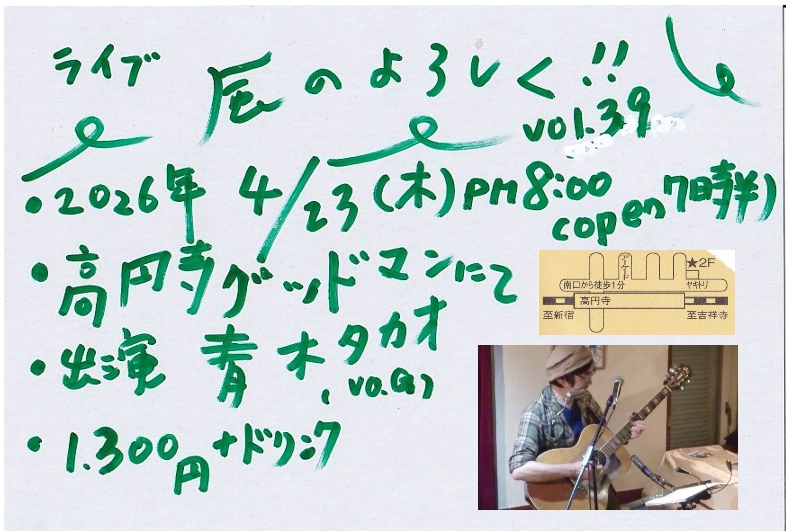 ライブ 辰のよろしく!!
vol.39
・2026年 4/23(木)pm8:00
(open 7時半)
・高円寺グッドマンにて
・出演 青木タカオ
(vo.G)
・1.300円+ドリンク
アーケード
★2F
南口から徒歩1分
ヤキトリ
高円寺
至新宿
至吉祥寺